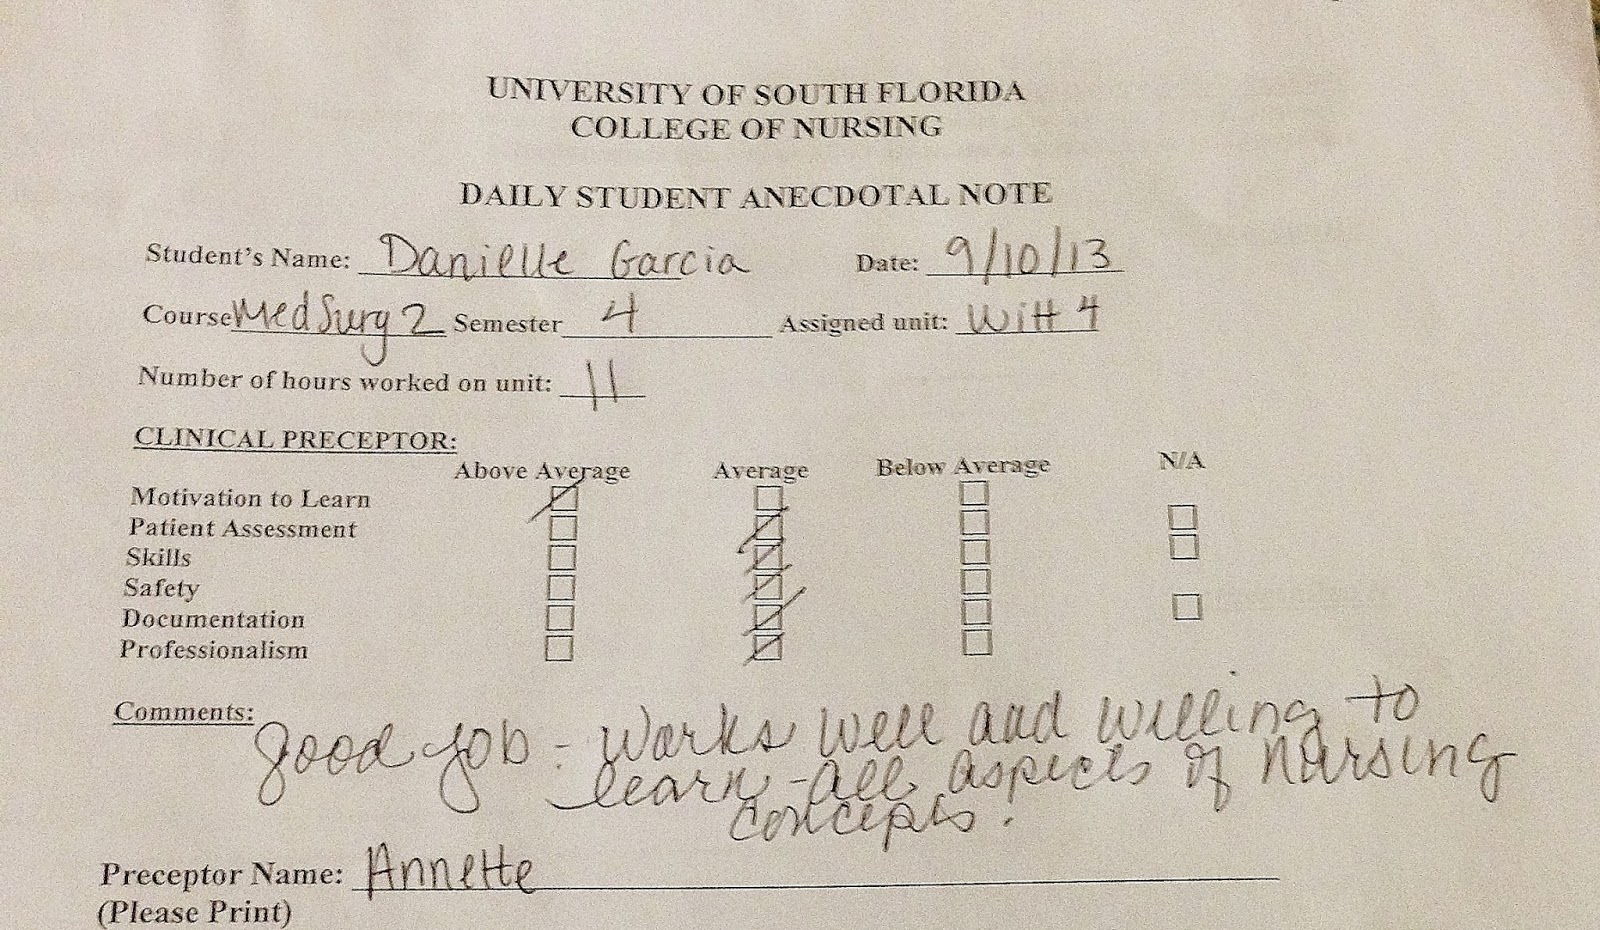 UNIVERSITY OF SOUTH FLORIDA
COLLEGE OF NURSING
DAILY STUDENT ANECDOTAL NOTE
Student's Name: Danielle Garcia Date: 9/10/13
Course Med Surg 2 Semester 4 Assigned unit: Witt 4
Number of hours worked on unit: 11
CLINICAL PRECEPTOR:
Above Average Average Below Average N/A
Motivation to Learn
Patient Assessment
Skills
Safety
Documentation
Professionalism
Comments: good job - works well and willing to
learn - all aspects of nursing
concepts.
Preceptor Name: Annette
(Please Print)